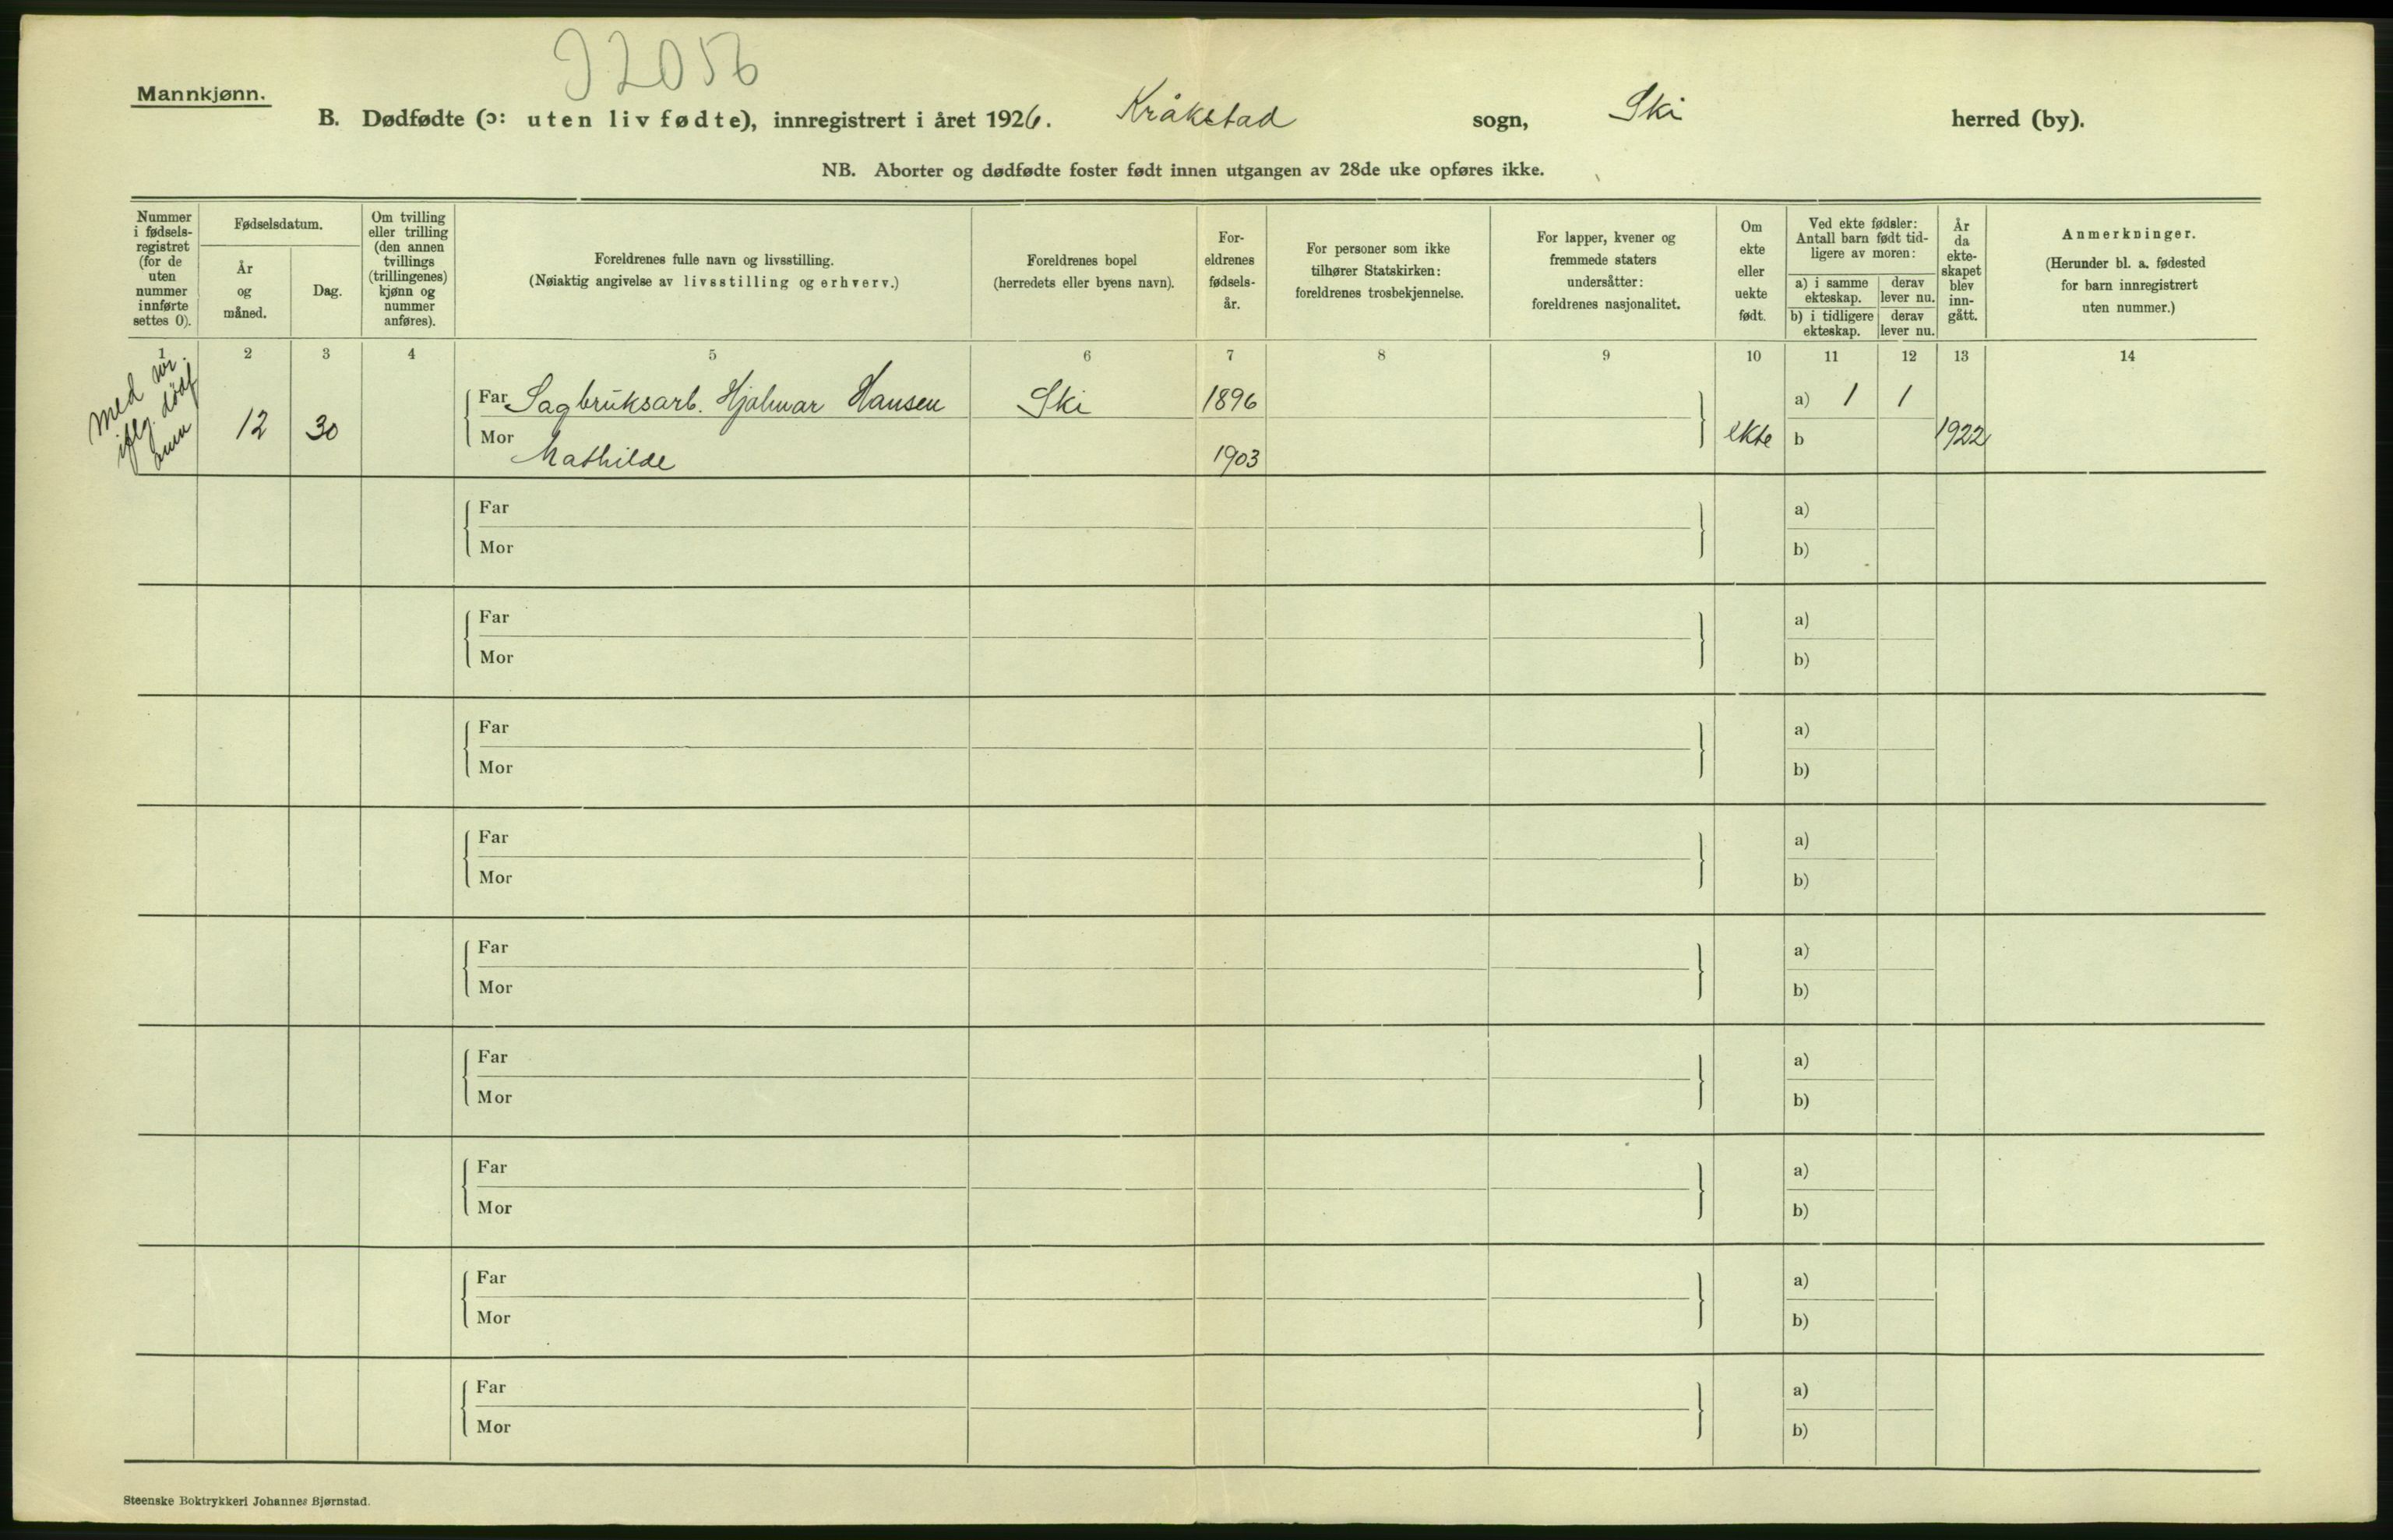 J2056
Mannkjønn.
B. Dødfødte (ɔ: uten liv fødte), innregistrert i året 1926. Kråkstad sogn, Ski herred (by).
NB. Aborter og dødfødte foster født innen utgangen av 28de uke opføres ikke.
Nummer
i fødsels-
registret
(for de
uten
nummer
innførte
settes 0).
Fødselsdatum.
År
og
måned.
Dag.
Om tvilling
eller trilling
(den annen
tvillings
(trillingenes)
kjønn og
nummer
anføres).
Foreldrenes fulle navn og livsstilling.
(Nøiaktig angivelse av livsstilling og erhverv.)
Foreldrenes bopel
(herredets eller byens navn).
For-
eldrenes
fødsels-
år.
For personer som ikke
tilhører Statskirken:
foreldrenes trosbekjennelse.
For lapper, kvener og
fremmede staters
undersåtter:
foreldrenes nasjonalitet.
Om
ekte
eller
uekte
født.
Ved ekte fødsler:
Antall barn født tid-
ligere av moren:
a) i samme
ekteskap.
derav
lever nu.
b) i tidligere
ekteskap.
derav
lever nu.
År
da
ekte-
skapet
blev
inn-
gått.
Anmerkninger.
(Herunder bl. a. fødested
for barn innregistrert
uten nummer.)
1 2 3 4 5 6 7 8 9 10 11 12 13 14
Med nr.
iflg. dødf
num
12 30
Far Sagbruksarb. Hjalmar Hansen Ski 1896 a) 1 1
Mor Mathilde 1903 ekte b 1922
Far a)
Mor b)
Far a)
Mor b)
Far a)
Mor b)
Far a)
Mor b)
Far a)
Mor b)
Far a)
Mor b)
Far a)
Mor b)
Far a)
Mor b)
Far a)
Mor b)
Steenske Boktrykkeri Johannes Bjørnstad.